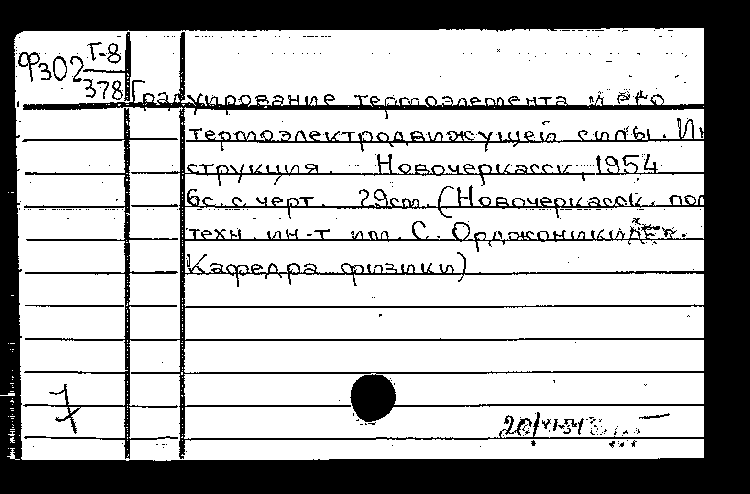 Ф302 Г-8
378
Градуирование термоэлемента и его
термоэлектродвижущей силы. Ин
струкция. Новочеркасск, 1954
6с. с черт. 29см. (Новочеркасск. пол
техн. ин-т им. С. Орджоникидзе.
Кафедра физики)
7
20/VI-54